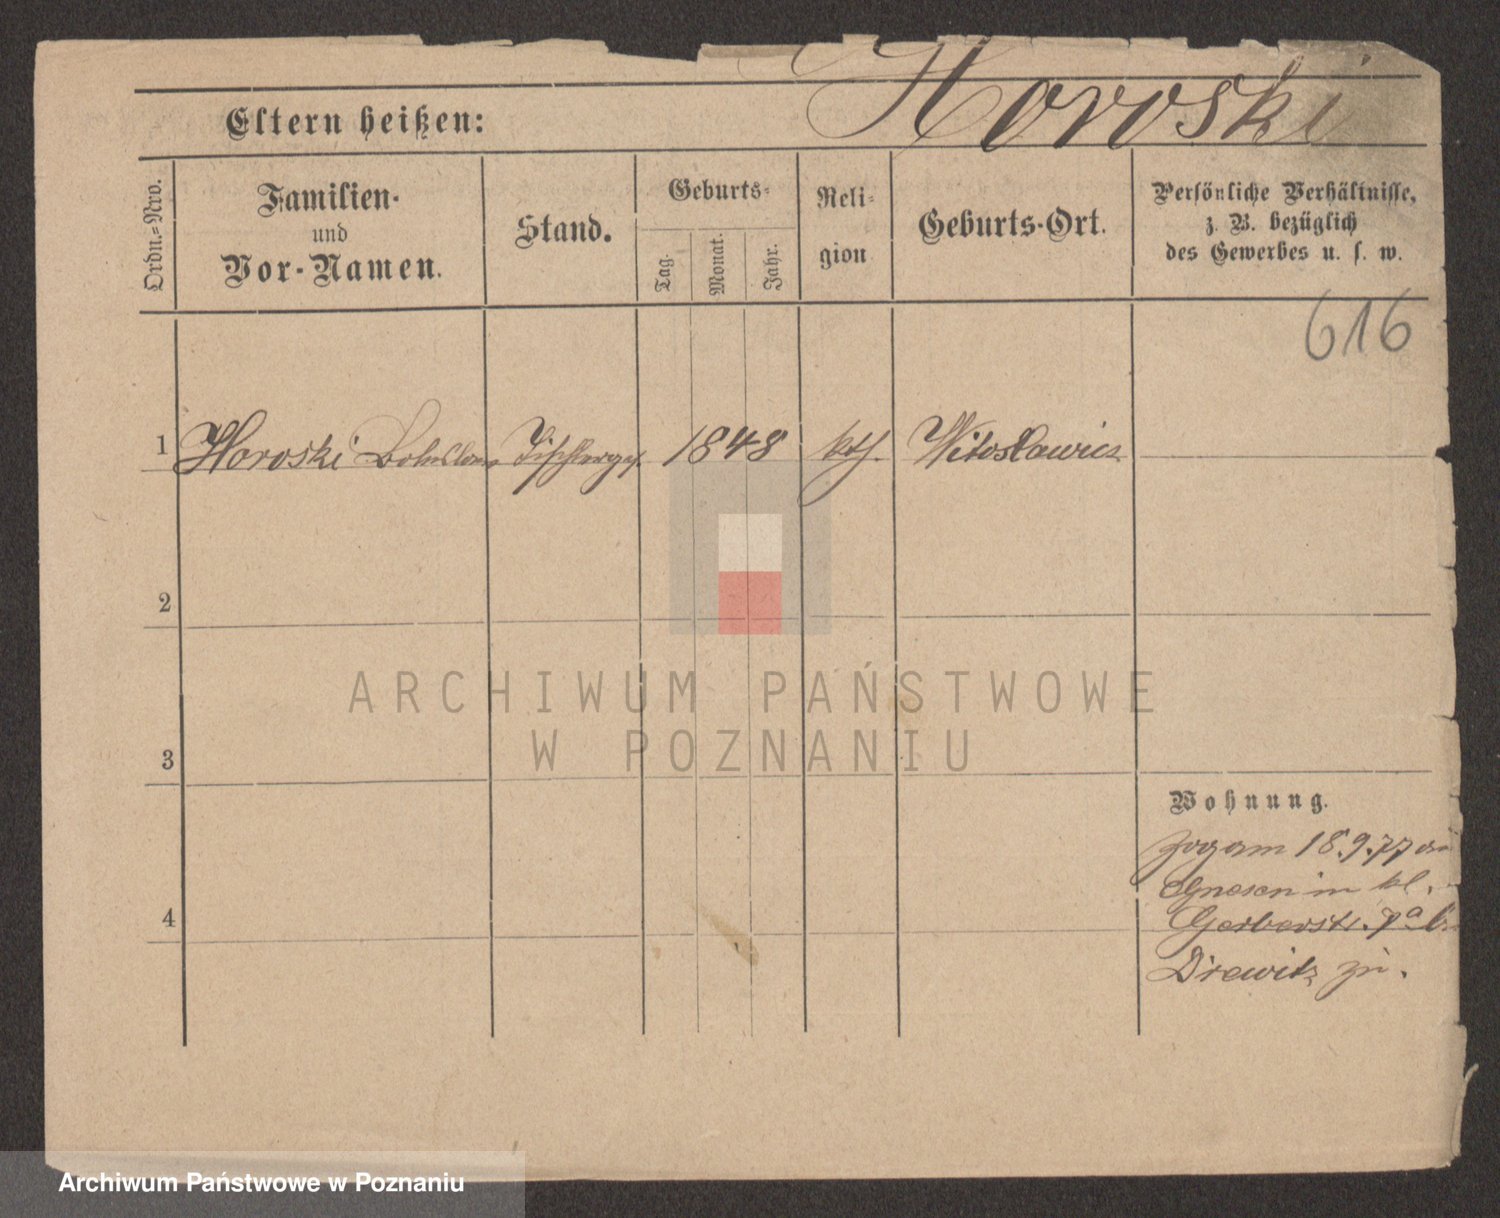 Horoski
Eltern heißen:
Ordn.=Nro.
Familien-
und
Vor-Namen.
Stand.
Geburts-
Tag.
Monat.
Jahr.
Reli-
gion
Geburts-Ort.
Persönliche Verhältnisse,
z. B. bezüglich
des Gewerbes u. s. w.
616
1 Horoski Boleslaw Tischlerges. 1848 kth. Witoslawice
2
3
4
Wohnung.
zog am 18.9.77 
Gnesen in kl.
Gerberstr. 7a
Drewitz zu.
ARCHIWUM PAŃSTWOWE
W POZNANIU
Archiwum Państwowe w Poznaniu